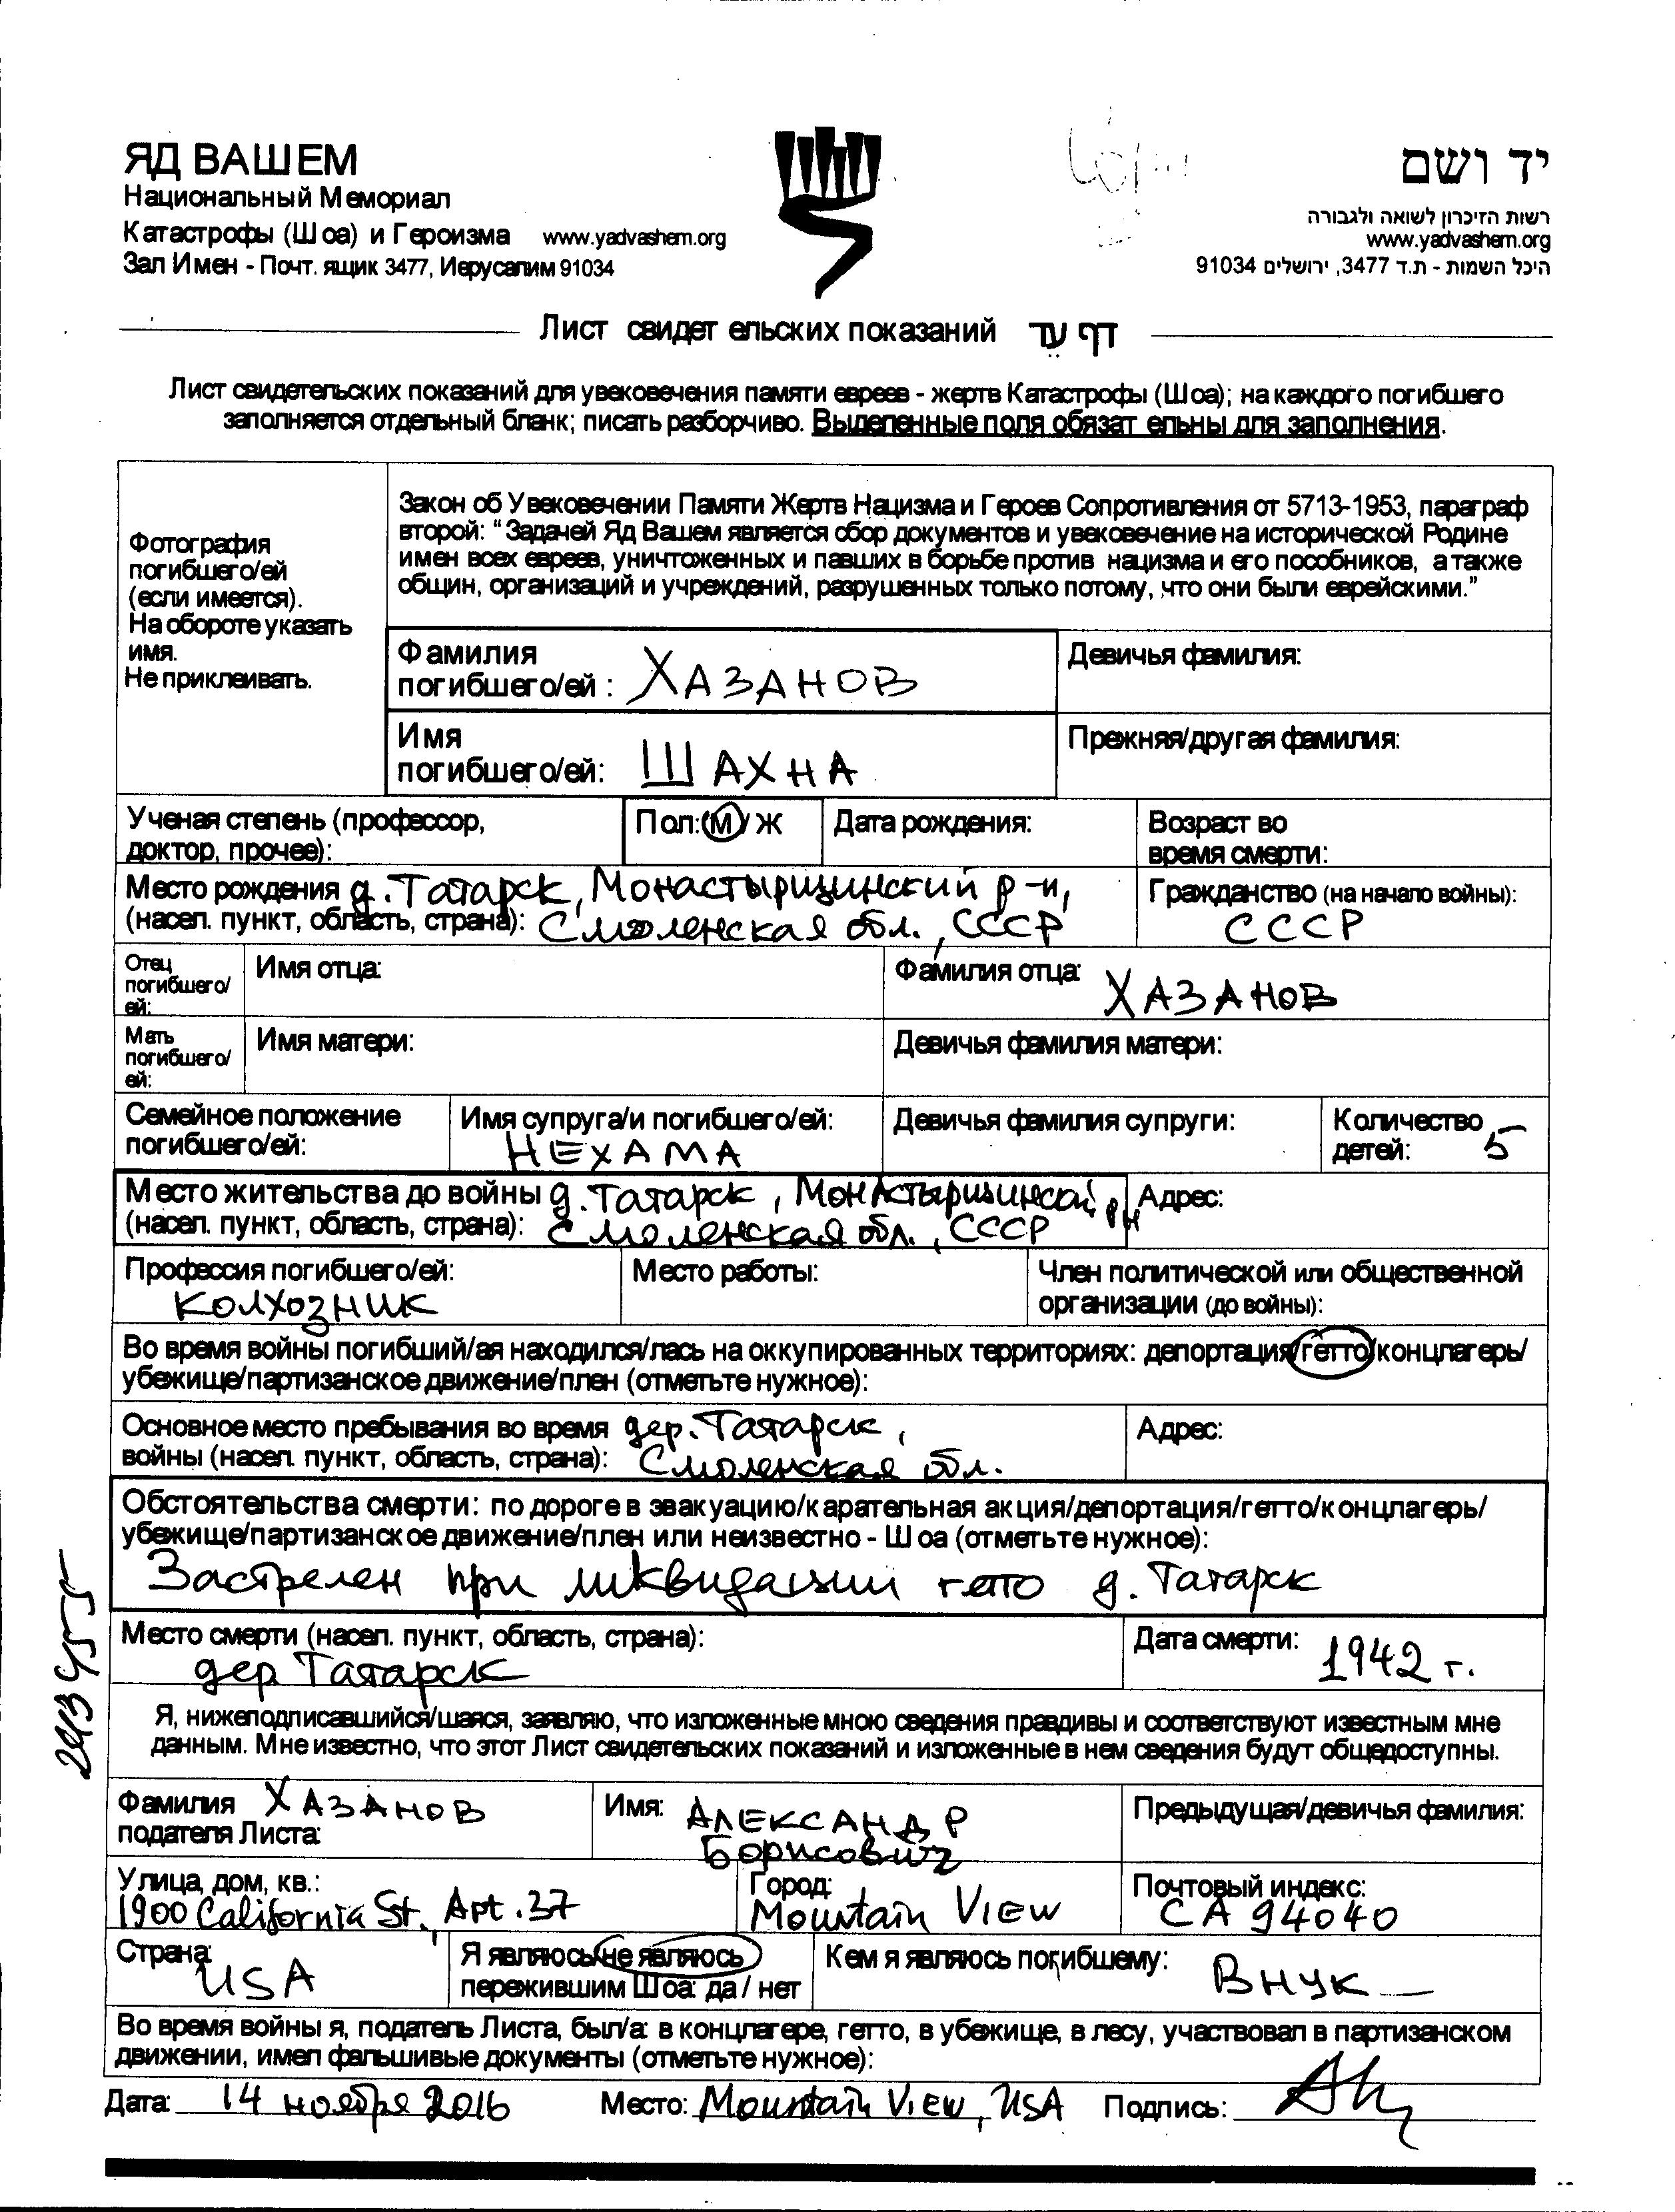 ЯД ВАШЕМ
Национальный Мемориал
Катастрофы (Шоа) и Героизма www.yadvashem.org
Зал Имен - Почт. ящик 3477, Иерусалим 91034
יד ושם
רשות הזיכרון לשואה ולגבורה
www.yadvashem.org
היכל השמות - ת.ד 3477, ירושלים 91034
Лист свидетельских показаний דף עד
Лист свидетельских показаний для увековечения памяти евреев - жертв Катастрофы (Шоа); на каждого погибшего
заполняется отдельный бланк; писать разборчиво. Выделенные поля обязательны для заполнения.
Фотография
погибшего/ей
(если имеется).
На обороте указать
имя.
Не приклеивать.
Закон об Увековечении Памяти Жертв Нацизма и Героев Сопротивления от 5713-1953, параграф
второй: "Задачей Яд Вашем является сбор документов и увековечение на исторической Родине
имен всех евреев, уничтоженных и павших в борьбе против нацизма и его пособников, а также
общин, организаций и учреждений, разрушенных только потому, что они были еврейскими."
Фамилия
погибшего/ей : ХАЗАНОВ
Девичья фамилия:
Имя
погибшего/ей: ШАХНА
Прежняя/другая фамилия:
Ученая степень (профессор,
доктор, прочее):
Пол: (М)/Ж
Дата рождения:
Возраст во
время смерти:
Место рождения д. Татарск, Монастырщинский р-н,
(насел. пункт, область, страна): Смоленская обл., СССР
Гражданство (на начало войны):
СССР
Отец
погибшего/
ей:
Имя отца:
Фамилия отца: ХАЗАНОВ
Мать
погибшего/
ей:
Имя матери:
Девичья фамилия матери:
Семейное положение
погибшего/ей:
Имя супруга/и погибшего/ей:
НЕХАМА
Девичья фамилия супруги:
Количество
детей: 5
Место жительства до войны д. Татарск, Монастырщинский рн
(насел. пункт, область, страна): Смоленская обл., СССР
Адрес:
Профессия погибшего/ей:
колхозник
Место работы:
Член политической или общественной
организации (до войны):
Во время войны погибший/ая находился/лась на оккупированных территориях: депортация/гетто/концлагерь/
убежище/партизанское движение/плен (отметьте нужное):
Основное место пребывания во время дер. Татарск,
войны (насел. пункт, область, страна): Смоленская обл.
Адрес:
Обстоятельства смерти: по дороге в эвакуацию/карательная акция/депортация/гетто/концлагерь/
убежище/партизанское движение/плен или неизвестно - Шоа (отметьте нужное):
Застрелен при ликвидации гетто д. Татарск
Место смерти (насел. пункт, область, страна):
дер Татарск
Дата смерти: 1942 г.
Я, нижеподписавшийся/шаяся, заявляю, что изложенные мною сведения правдивы и соответствуют известным мне
данным. Мне известно, что этот Лист свидетельских показаний и изложенные в нем сведения будут общедоступны.
Фамилия ХАЗАНОВ
подателя Листа:
Имя: АЛЕКСАНДР
Борисович
Предыдущая/девичья фамилия:
Улица, дом, кв.:
1900 California St, Apt. 37
Город:
Mountain View
Почтовый индекс:
CA 94040
Страна:
USA
Я являюсь/не являюсь
пережившим Шоа: да / нет
Кем я являюсь погибшему: ВНУК
Во время войны я, податель Листа, был/а: в концлагере, гетто, в убежище, в лесу, участвовал в партизанском
движении, имел фальшивые документы (отметьте нужное):
Дата: 14 ноября 2016 Место: Mountain View, USA Подпись: